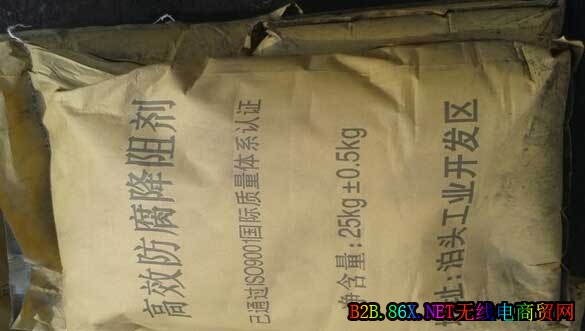 高效防腐降阻剂
已通过ISO9001国际质量体系认证
净含量:25kg±0.5kg
址:泊头工业开发区
B2B.86X.NET无线电商贸网